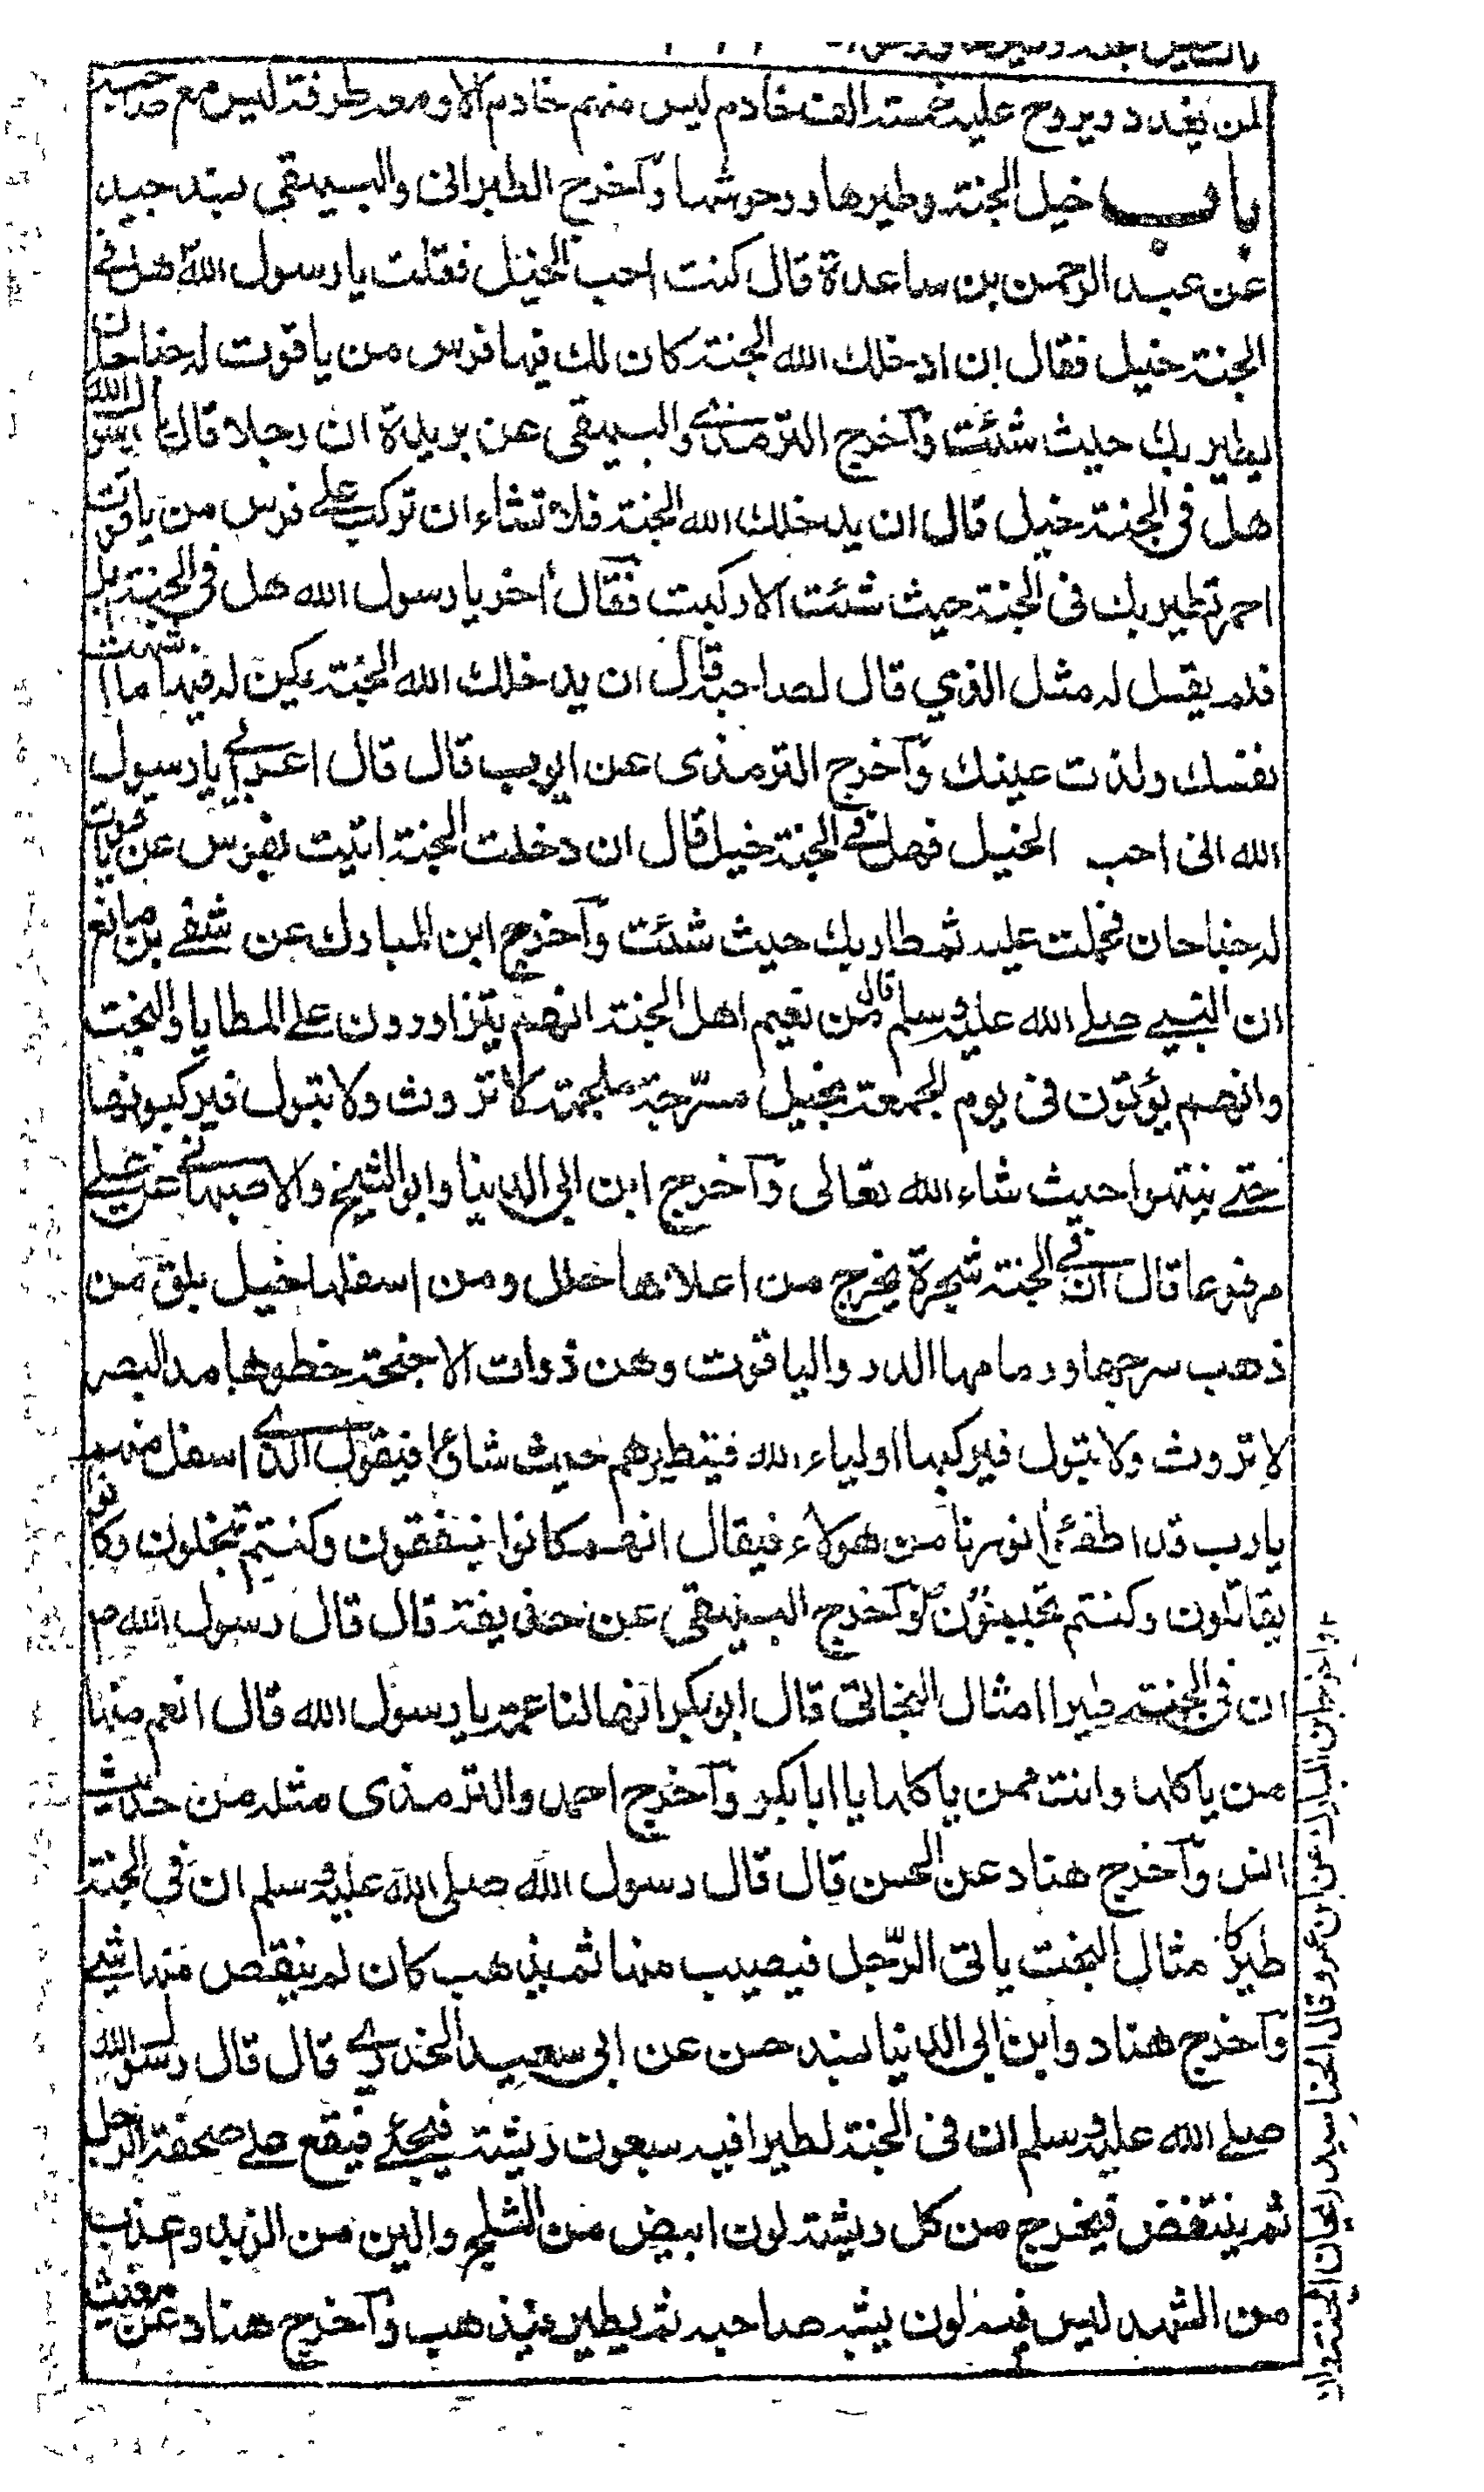 لمن يغدد ويروح عليه خمسة الف خادم ليس منهم خادم الا ومعه طرفة ليس مع صاحبه
باب خيل الجنة وطيرها ووحوشها وآخرج الطبرانى والبيهقي بسند جيد
عن عبد الرحمن بن ساعدة قال كنت احب الخيل فقلت يا رسول الله هل في
الجنة خيل فقال ان ادخلك الله الجنة كان لك فيها فرس من ياقوت له جناحان
يطير بك حيث شئت وآخرج الترمذي والبيهقى عن بريدة ان رجلا قال يا رسول الله
هل فى الجنة خيل قال ان يدخلك الله الجنة فلا تشاء ان تركب على فرس من ياقوت
احمر تطير بك فى الجنة حيث شئت الا ركبت فقال آخر يا رسول الله هل فى الجنة ابل
فلم يقل له مثل الذي قال لصاحبه قال ان يدخلك الله الجنة يكن له فيها ما اشتهت
نفسك ولذت عينك وآخرج الترمذى عن ايوب قال قال اعرابي يا رسول
الله انى احب الخيل فهل في الجنة خيل قال ان دخلت الجنة اتيت بفرس عن ياقوت
له جناحان فحملت عليه ثم طار بك حيث شئت وآخرج ابن المبارك عن شفي بن مانع
ان النبي صلى الله عليه وسلم قال من نعيم اهل الجنة انهم يتزاورون على المطايا والبخت
وانهم يؤتون فى يوم الجمعة بخيل مسرّجة ملجمة لا تروث ولا تبول فيركبونها
حتى ينتهوا حيث شاء الله تعالى وآخرج ابن ابي الدنيا وابو الشيخ والاصبهاني عن علي
مرفوعا قال ان في الجنة شجرة يخرج من اعلاها حلل ومن اسفلها خيل بلق من
ذهب سرجها وزمامها الدر والياقوت وهن ذوات الاجنحة خطوها مد البصر
لا تروث ولا تبول فيركبها اولياء الله فتطير بهم حيث شاؤا فيقول الذي اسفل منهم
يا رب قد اطفؤا نورنا من هولاء فيقال انهم كانوا ينفقون وكنتم تبخلون وكانوا
يقاتلون وكنتم تجبنون وآخرج البيهقي عن حذيفة قال قال رسول الله ص
ان فى الجنة طيرا امثال البخاتى قال ابو بكر انها لناعمة يا رسول الله قال انعم منها
من ياكلها وانت ممن ياكلها يا ابا بكر وآخرج احمد والترمذى مثله من حديث
انس وآخرج هناد عن الحسن قال قال رسول الله صلى الله عليه وسلم ان في الجنة
طيرا كامثال البخت ياتى الرّجل فيصيب منها ثم يذهب كان لم ينقص منها شئ
وآخرج هناد وابن ابي الدنيا بسند حسن عن ابى سعيد الخدري قال قال رسول الله
صلى الله عليه وسلم ان فى الجنة لطيرا فيه سبعون ريشة فيجئ فيقع على صحفة الرجل
ثم ينتفض فيخرج من كل ريشة لون ابيض من الثلج والين من الزبد وعذب
من الشهد ليس فيه لون يشبه صاحبه ثم يطير فيذهب وآخرج هناد عن مغيث
واخرج ابن المبارك عن ابن عمرو قال الحنا سيد ريحان الجنة وان